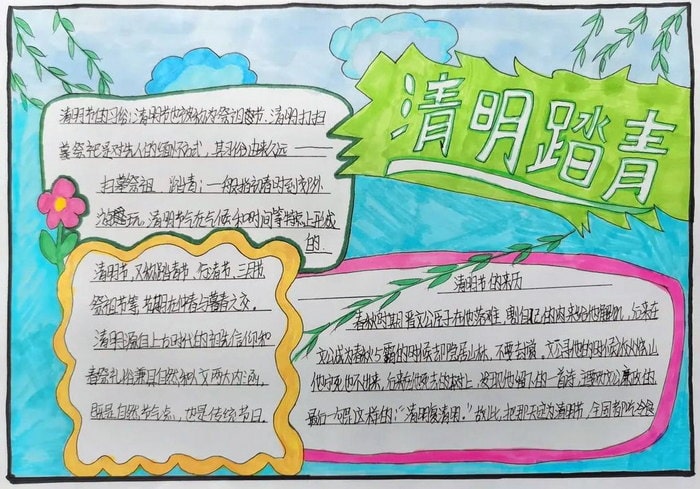 清明踏青
清明节的习俗:清明节也被称为祭祖节.清明扫
墓祭祀是对先人的缅怀方式,其习俗由来久远
扫墓祭祖 踏青:一般指初春时到郊外
游玩.清明节气在气候和时间等特点上形成
的.
清明节,又称踏青节、行清节、三月节、
祭祖节等,节期在仲春与暮春之交。
清明源自上古时代的祖先信仰和
春祭礼俗兼具自然和人文两大内涵,
既是自然节气点,也是传统节日。
清明节的来历
春秋时期晋文公 在他落难 割自己的肉来给他 ,后来在
文公成为春秋五霸的时候却隐居山林,不要去 。文公寻他的时候放火烧山
他 也不出来,后来在他 的 树上,发现他留下的一首诗, 文公 的
最后一句是这样的:“清明复清明。”故此把那天定为清明节,全国都吃冷食